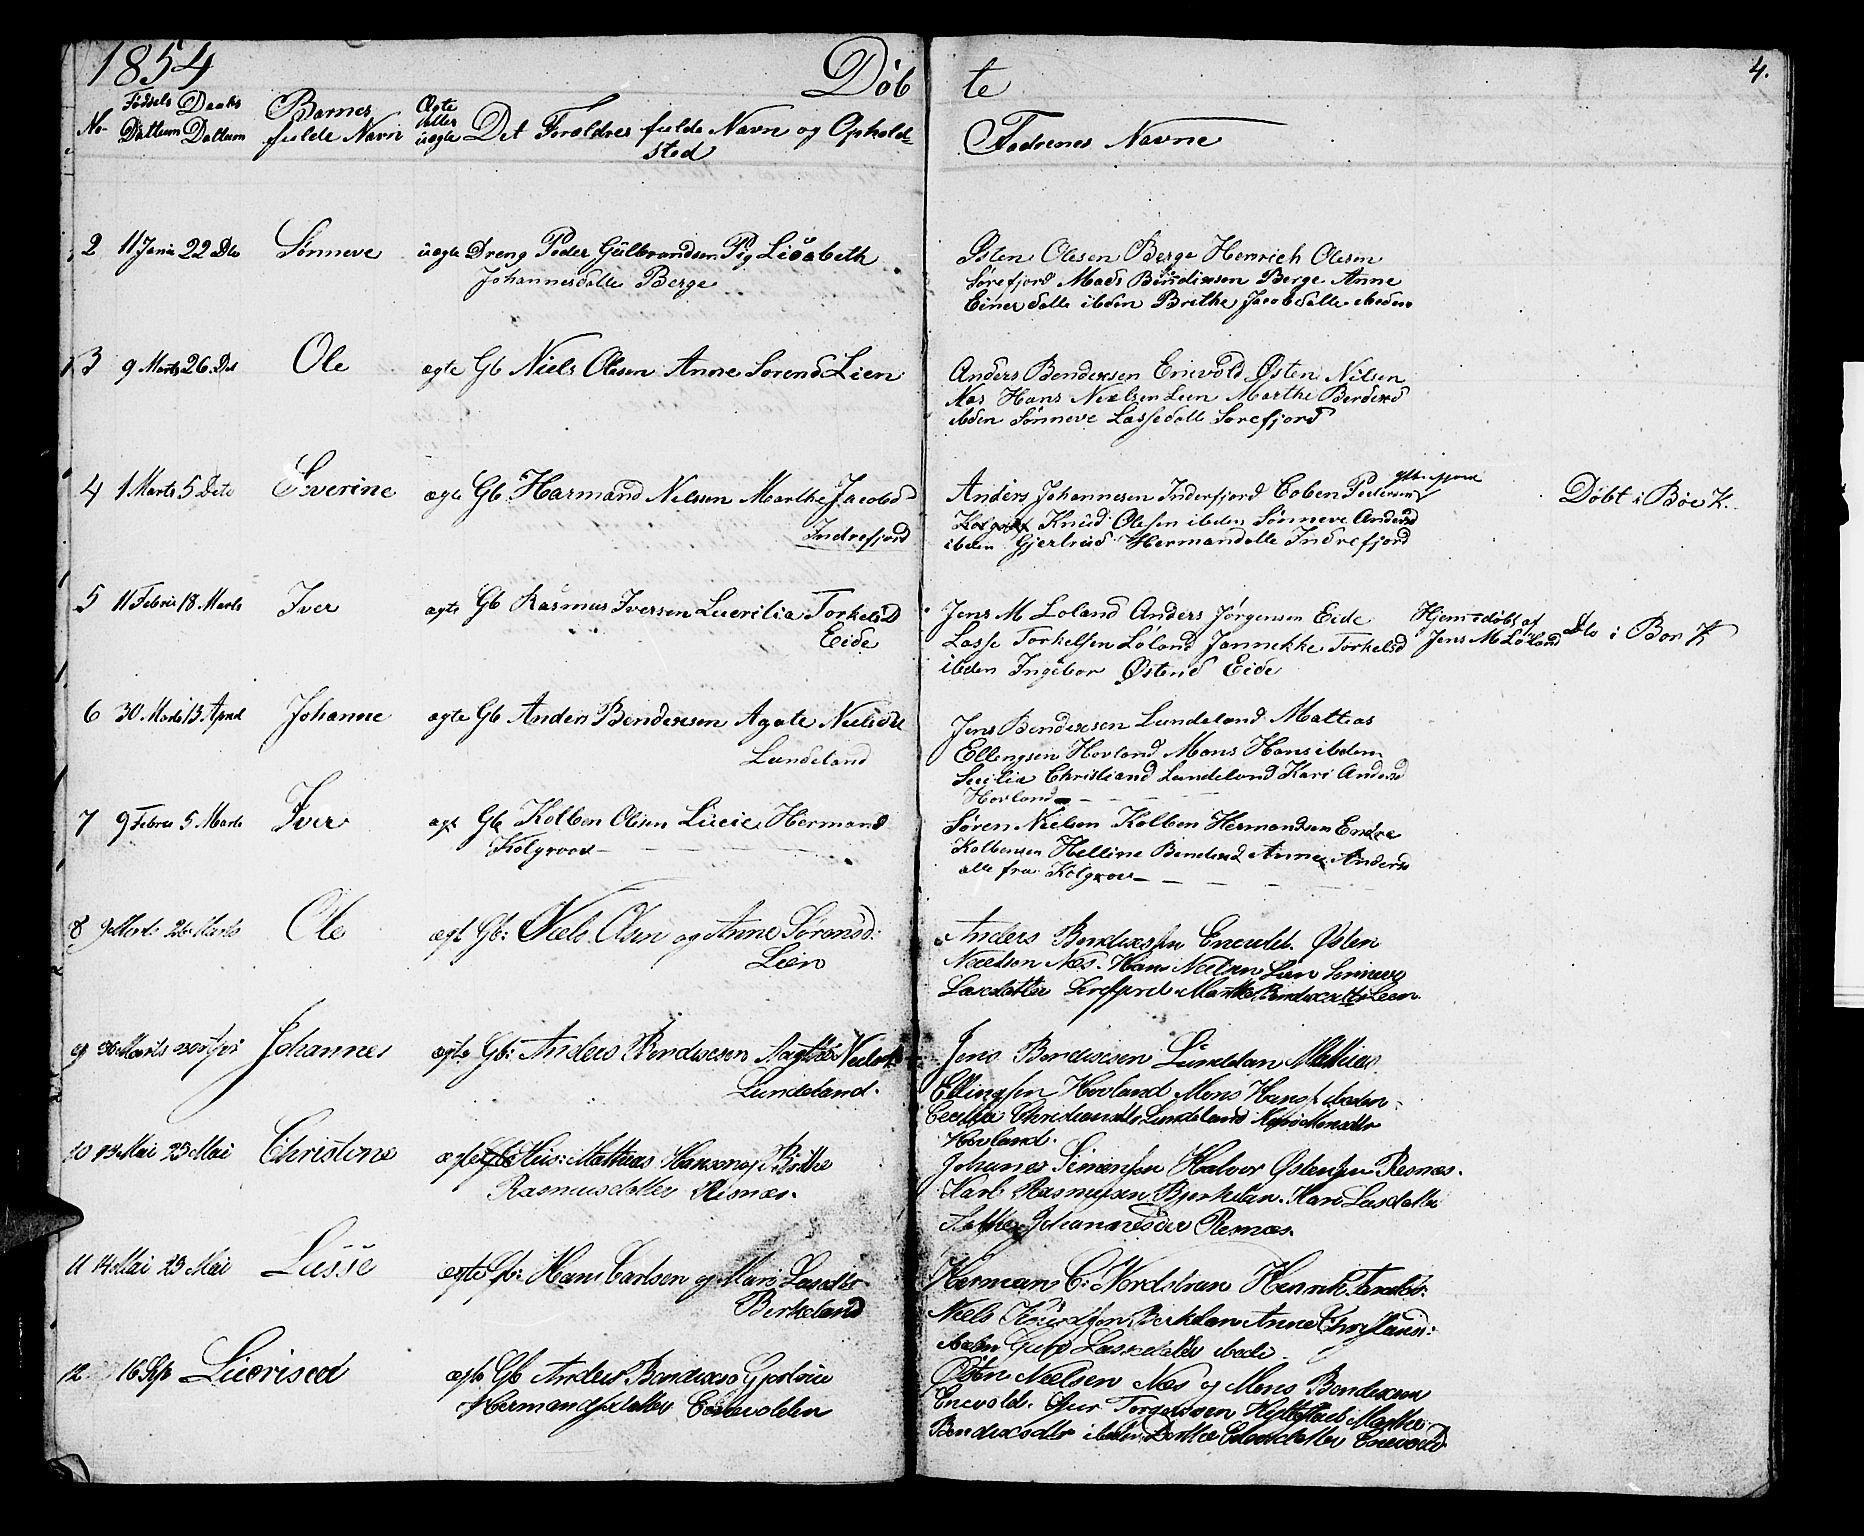 1854
Døb te
4.
No Fødsels Dattum Daabs Dattum Barnes fulde Navn Ægte eller uægte Det Forældres fulde Navn og Opholdsted
Fadrenes Navne
2 11 Janu 22 Dto Sønneve uægte Dreng Peder Gulbrandsen Pig Lisabeth
Johannesdatte Berge
Østen Olesen Berge Henrich Olesen
Sørefjord Mads Bendixsen Berge Anne
Einersdatte ibden Brithe Jacobdatte ibeden
3 9 Marts 26 Dto Ole ægte Gb Niels Olesen Anne Sørensd Lien
Anders Bendixsen Enevold Østen Nilsen
Næs Hans Nielsen Lien Marthe Bendixsd
ibden Sønneve Lassedatte Sørefjord
4 1 Marts 5 Dito Severine ægte Gb Harmand Nilssen Marthe Jacobsd
Indrefjord
Anders Johannesen Inderfjord Coben Pedersen
Knud Olesen ibden Sønneve Andersd
ibden Gjertrud Hermandatte Indrefjord
Døbt i Bøe K.
5 11 Febru 18 Marts Iver ægte Gb Rasmus Iversen Lucrilia Torkelsd
Eide
Jens M Loland Anders Jørgensen Eide
Lasse Torkelsen Løland Jannekke Torkelsd
ibden Ingebor Østensd Eide
Hjemmedøbt af
Jens M Løland
Dto i Boe K
6 30 Marts 13 April Johanne ægte Gb Anders Bendixsen Agate Nielsdtt
Lundeland
Jens Bendixsen Lundeland Mattias
Ellengsen Hovland Mons Hans ibden
Secilia Christiansd Lundeland Kari Andersd
Hovland
7 9 Febru 5 Marts Iver ægt Gb Kolben Olsen Lucie Hermansd
Kolgrov
Søren Nielsen Kolben Hermandsen Endre
Kolbensen Helline Bendixsd Anne Andersd
alle fra Kolgrov
8 9 Marts 26 Marts Ole ægt Gb: Niels Olsen og Anne Sørensd:
Lien
Anders Bendixssen Enevold. Østen
Neelson Næs. Hans Neelsen Lien Sønneve
Lasdatter Sørefjord Marthe Bendixdatter Leen
9 30 Marts Apr Johannes ægte Gb: Anders Bendixsen Nielsd
Lundeland.
Jens Bendixsen Lundelan Mathias.
Ellingssen Hovland Mons Hans ibeden
Cecilia Christiansdtr Lundeland Monsdtr
Hovland.
10 Mai 25 Mai Christone ægte Hus: Mathias Hanson og Brithe
Rasmusdatter Risnæs.
Johanes Simonsen Halvor Østensen Resnæs.
Karl Rasmussen Bjerkelan. Kari Lasdatte
Johannesdtr Resnæs.
11 14 Mai 25 Mai Lusse ægte Gb: Hans Carlsen og Mari Lasdtr
Birkeland
Herman C: Nordstran Henrik
Niels Knudsson Birkelan Anne Christiansd:
Lassedatter ibede
12 16 Sep Lucrised ægte Gb Anders Bendixsen Gjertrue
Hermandsdatter Enevolden
Østen Nielsen Næs og Mons Bendixsen
Enevold. Torgersen Marthe
Bendixsdtr ibeden Enevold